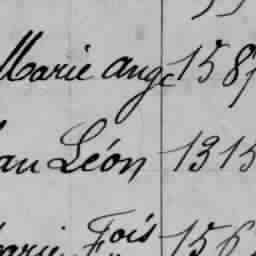 Marie ange 158
au Léon 1315
arie Fois 156